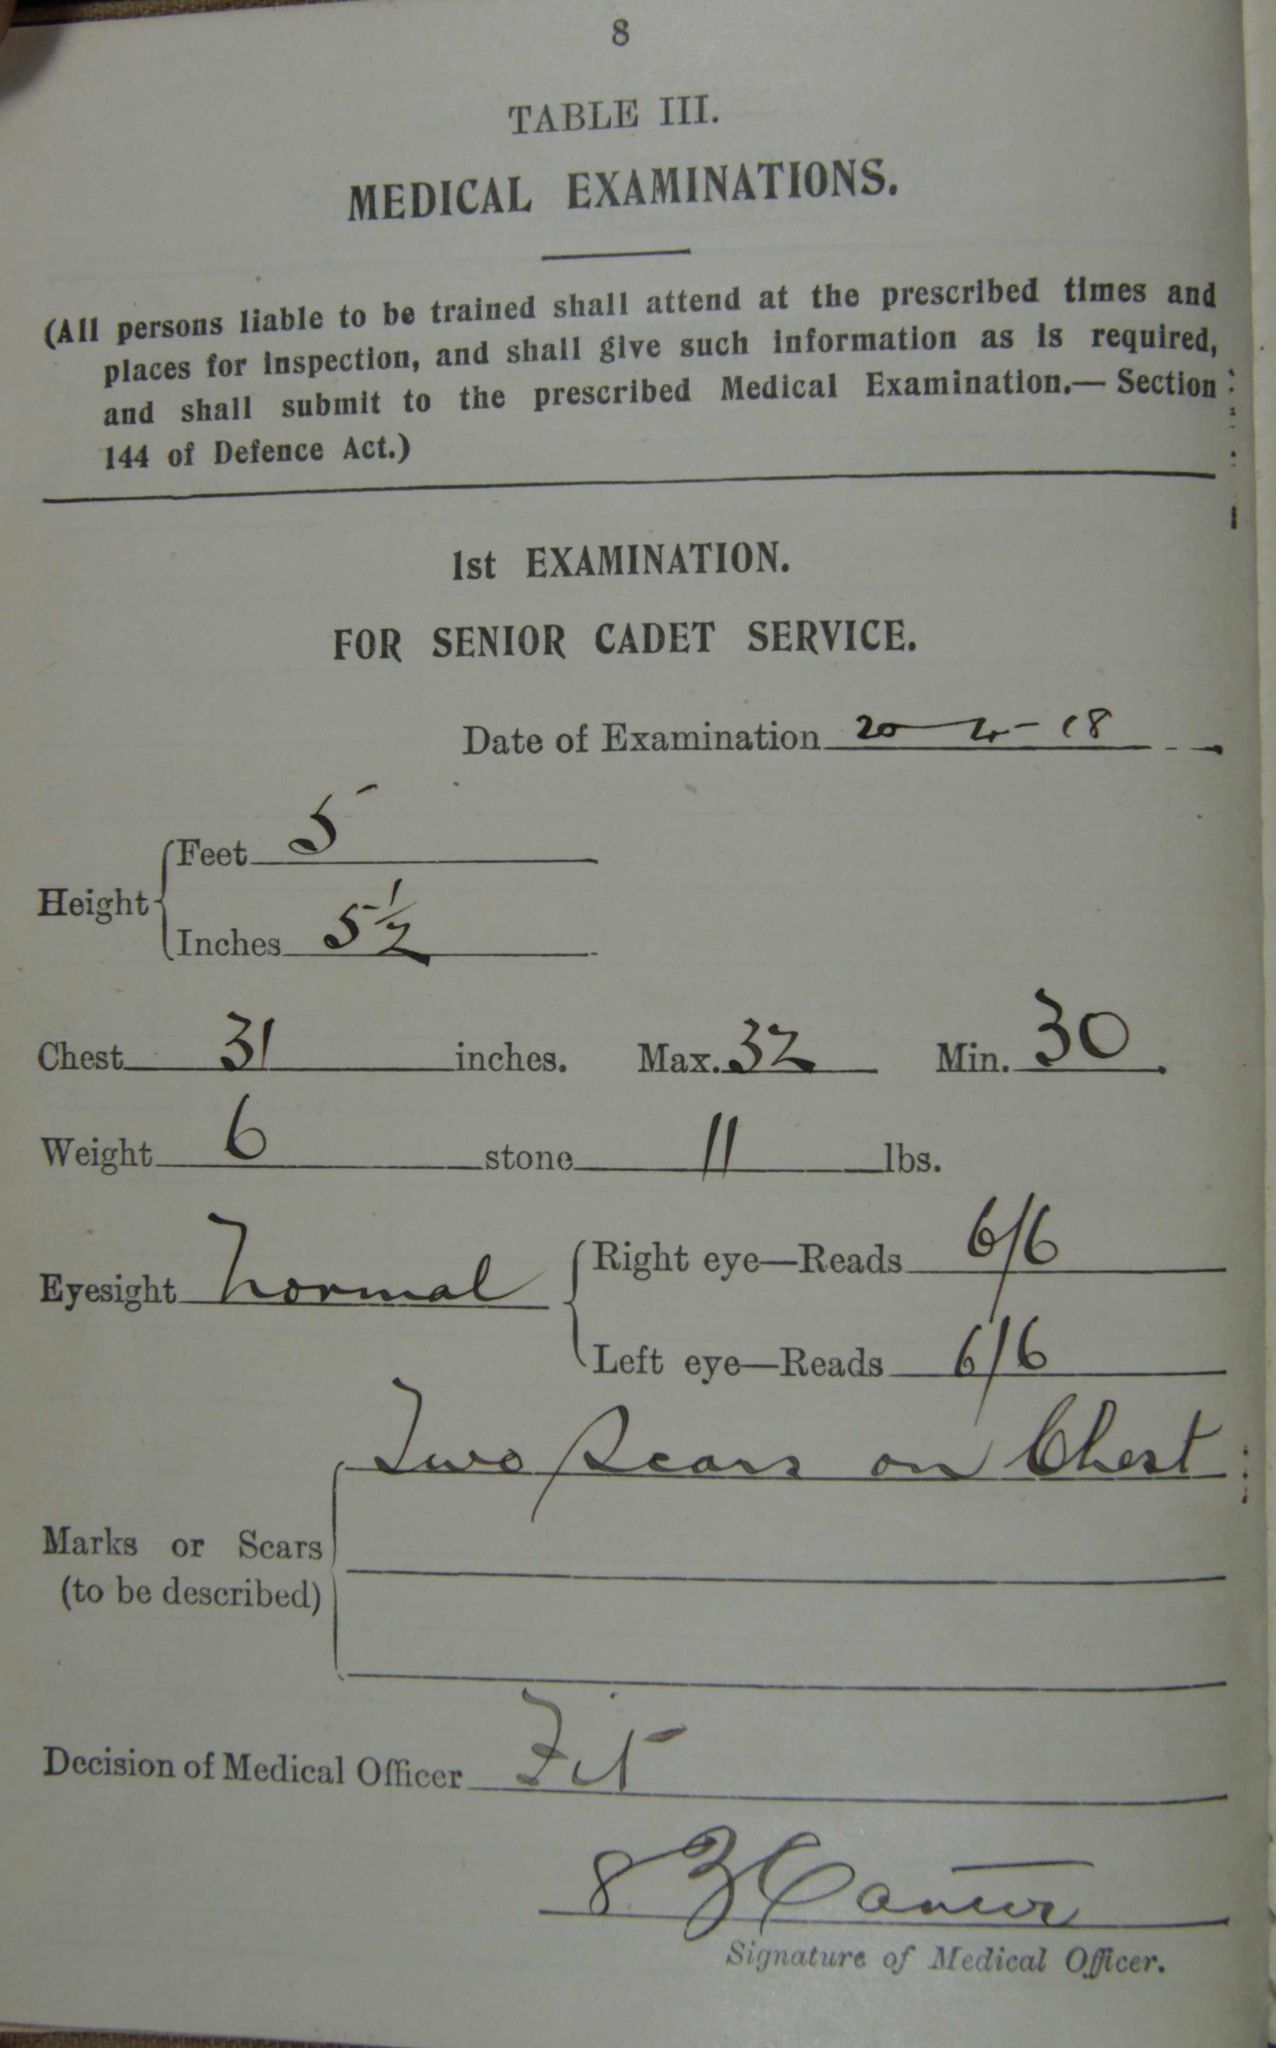 8
TABLE III.
MEDICAL EXAMINATIONS.
(All persons liable to be trained shall attend at the prescribed times and
places for inspection, and shall give such information as is required,
and shall submit to the prescribed Medical Examination.— Section
144 of Defence Act.)
1st EXAMINATION.
FOR SENIOR CADET SERVICE.
Date of Examination 20 - - 18
Height
Feet 5
Inches 5 1/2
Chest 31 inches. Max. 32 Min. 30.
Weight 6 stone 11 lbs.
Eyesight Normal
Right eye—Reads 6/6
Left eye—Reads 6/6
Two Scars on Chest
Marks or Scars
(to be described)
Decision of Medical Officer Fit
Signature of Medical Officer.